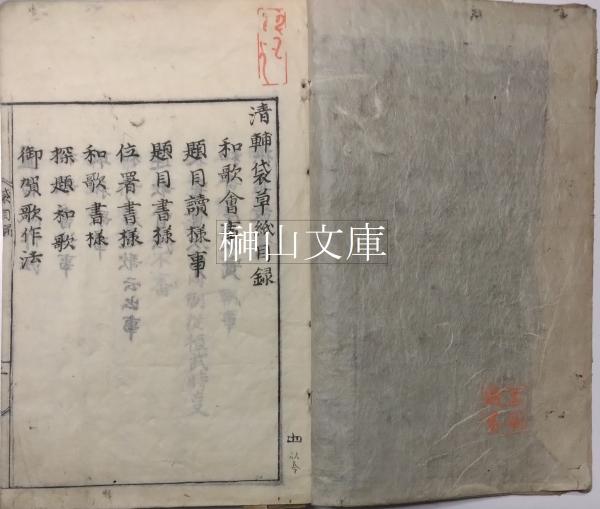 清輔袋草紙目録
和歌會事
題目讀様事
題目書様
位署書様
和歌書様
探題和歌
御賀歌作法
榊山文庫